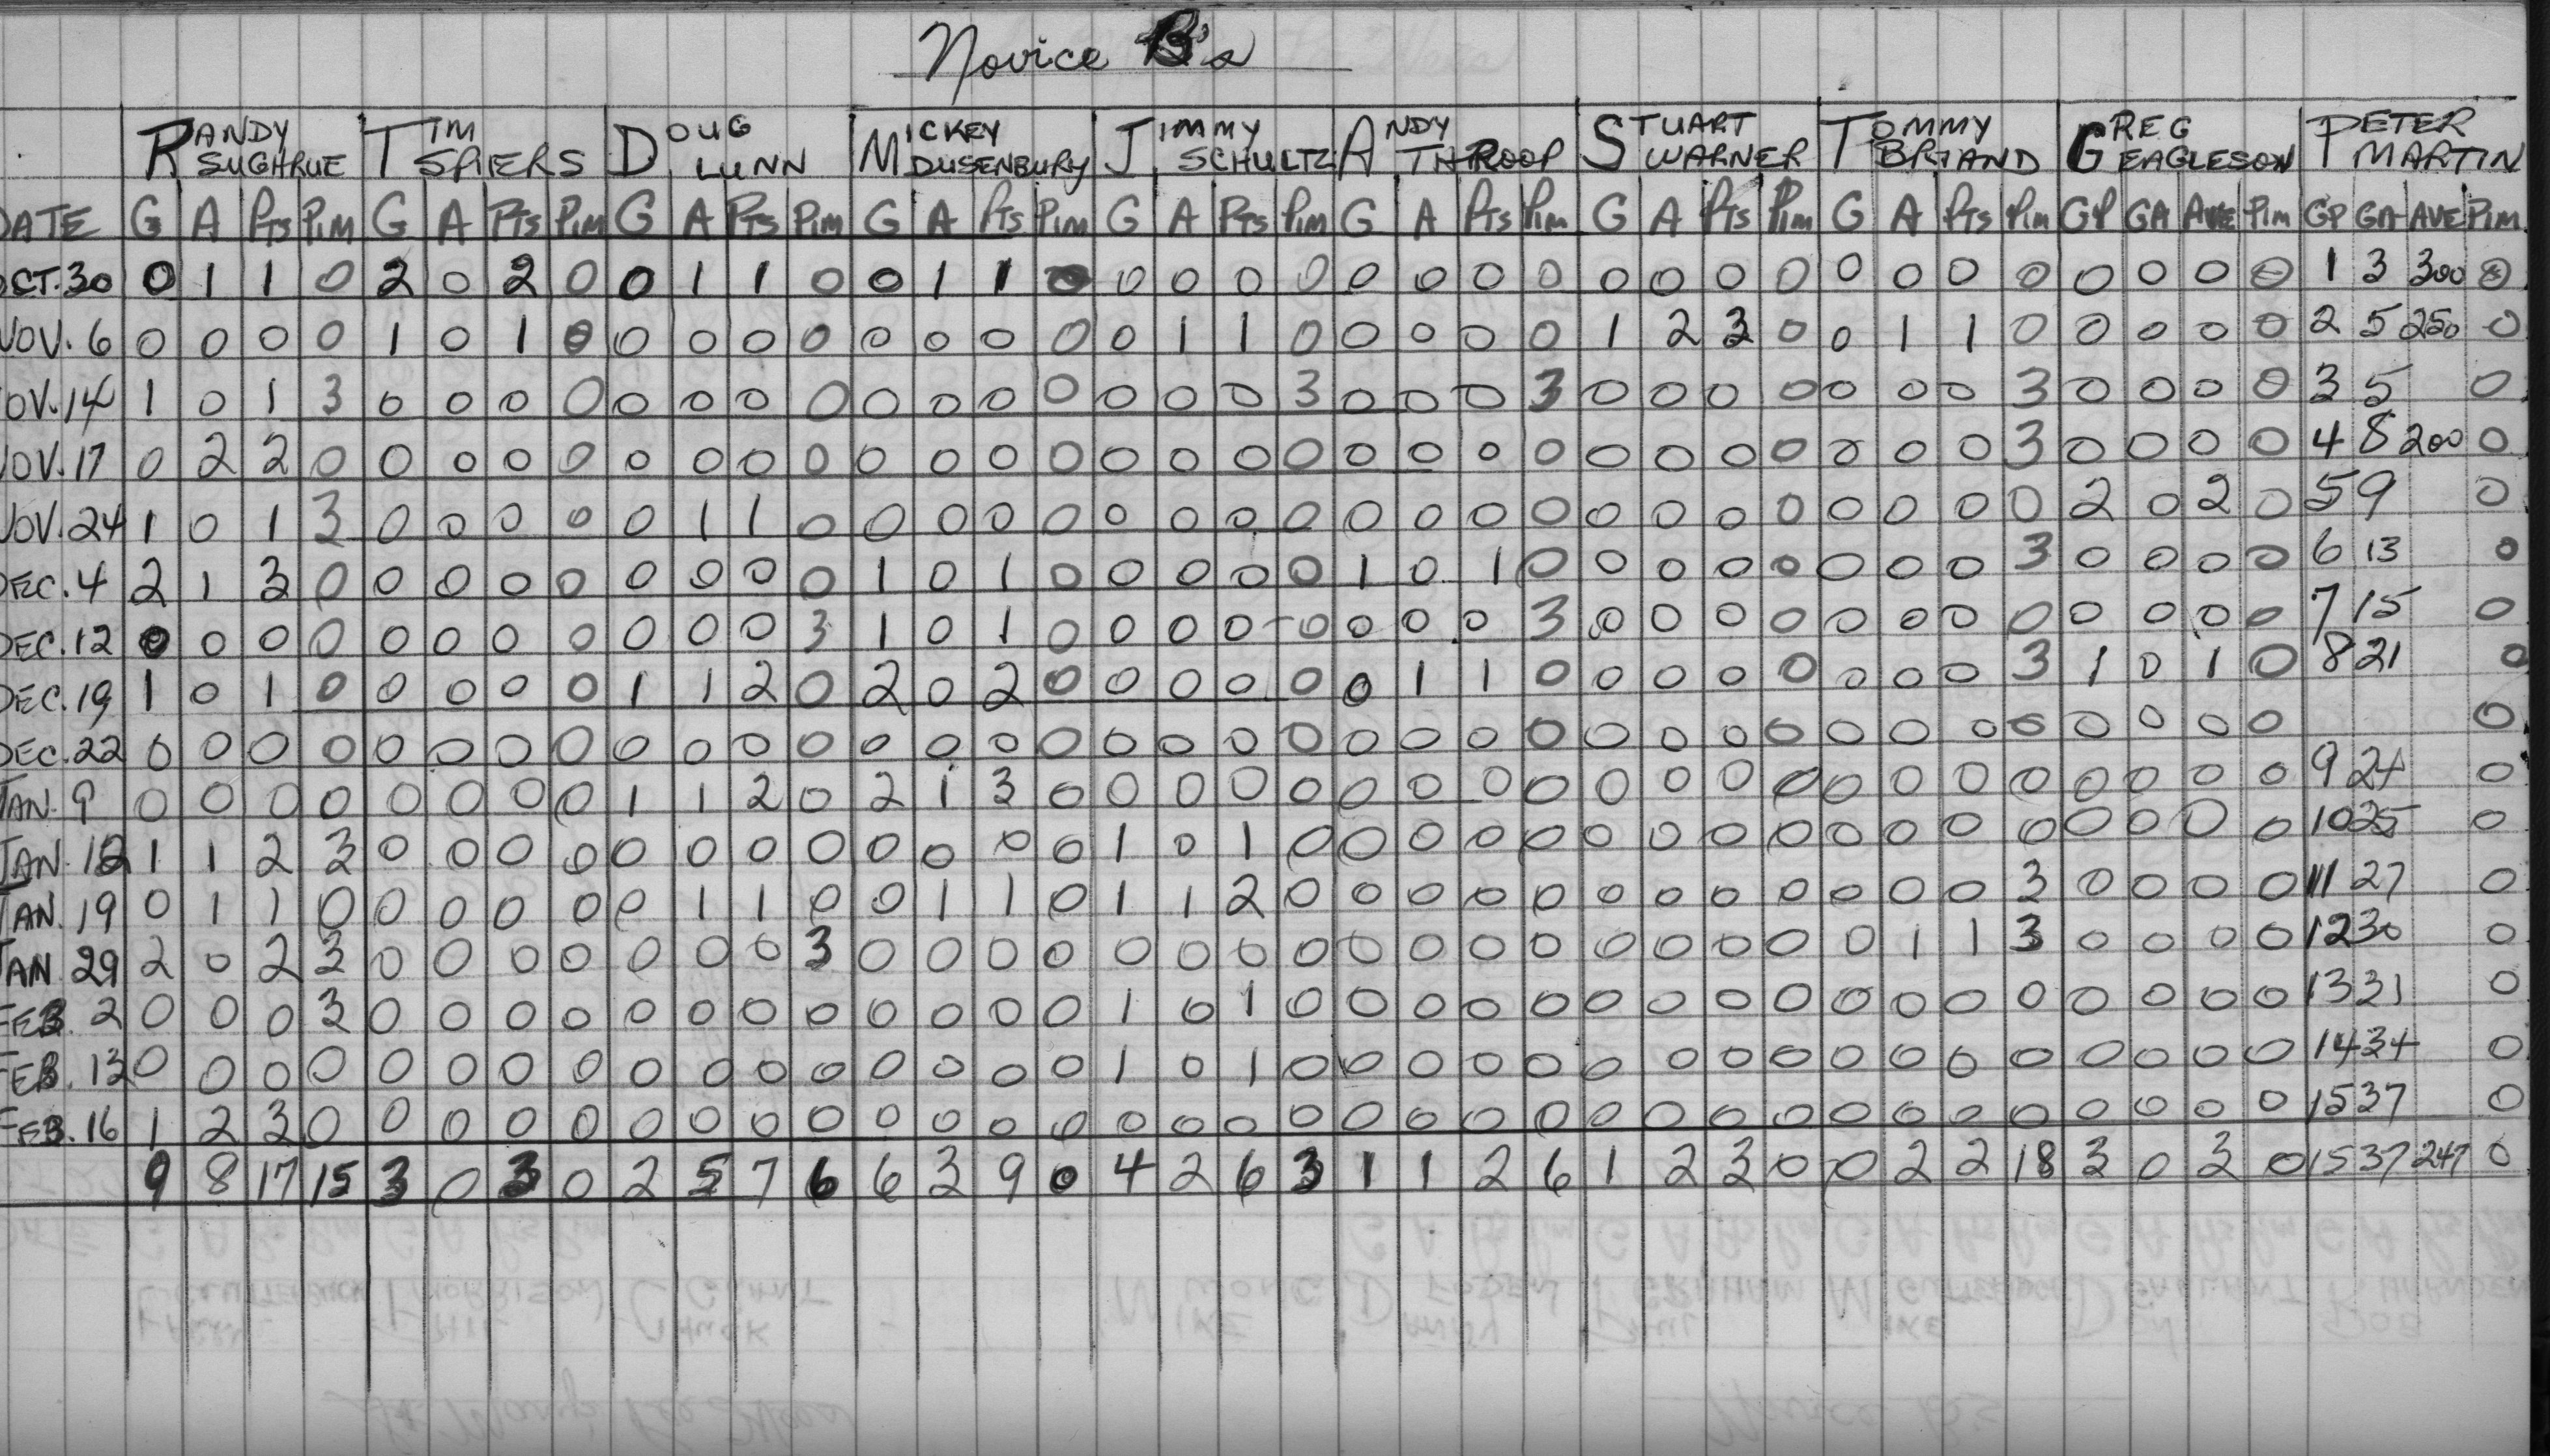 Novice B's
RANDY SUGHRUE TIM SPIERS DOUG LUNN MICKEY DUSENBURY JIMMY SCHULTZ ANDY THROOP STUART WARNER TOMMY BRIAND GREG EAGLESON PETER MARTIN
DATE G A PTS PIM G A PTS PIM G A PTS PIM G A PTS PIM G A PTS PIM G A PTS PIM G A PTS PIM G A PTS PIM GP GA AVE PIM GP GA AVE PIM
OCT. 30 0 1 1 0 2 0 2 0 0 1 1 0 0 1 1 0 0 0 0 0 0 0 0 0 0 0 0 0 0 0 0 0 0 0 0 0 1 3 300 0
NOV. 6 0 0 0 0 1 0 1 0 0 0 0 0 0 0 0 0 0 1 1 0 0 0 0 0 1 2 3 0 0 1 1 0 0 0 0 0 2 5 250 0
NOV. 14 1 0 1 3 0 0 0 0 0 0 0 0 0 0 0 0 0 0 0 3 0 0 0 3 0 0 0 0 0 0 0 3 0 0 0 0 3 5 0
NOV. 17 0 2 2 0 0 0 0 0 0 0 0 0 0 0 0 0 0 0 0 0 0 0 0 0 0 0 0 0 0 0 0 3 0 0 0 0 4 8 200 0
NOV. 24 1 0 1 3 0 0 0 0 0 1 1 0 0 0 0 0 0 0 0 0 0 0 0 0 0 0 0 0 0 0 0 0 2 0 2 0 5 9 0
DEC. 4 2 1 3 0 0 0 0 0 0 0 0 0 1 0 1 0 0 0 0 0 1 0 1 0 0 0 0 0 0 0 0 3 0 0 0 0 6 13 0
DEC. 12 0 0 0 0 0 0 0 0 0 0 0 3 1 0 1 0 0 0 0 0 0 0 0 3 0 0 0 0 0 0 0 0 0 0 0 0 7 15 0
DEC. 19 1 0 1 0 0 0 0 0 1 1 2 0 2 0 2 0 0 0 0 0 0 1 1 0 0 0 0 0 0 0 0 3 1 0 1 0 8 21 0
DEC. 22 0 0 0 0 0 0 0 0 0 0 0 0 0 0 0 0 0 0 0 0 0 0 0 0 0 0 0 0 0 0 0 0 0 0 0 0 0
JAN. 9 0 0 0 0 0 0 0 0 1 1 2 0 2 1 3 0 0 0 0 0 0 0 0 0 0 0 0 0 0 0 0 0 0 0 0 0 9 24 0
JAN. 12 1 1 2 3 0 0 0 0 0 0 0 0 0 0 0 0 1 0 1 0 0 0 0 0 0 0 0 0 0 0 0 0 0 0 0 0 10 25 0
JAN. 19 0 1 1 0 0 0 0 0 0 1 1 0 0 1 1 0 1 1 2 0 0 0 0 0 0 0 0 0 0 0 0 3 0 0 0 0 11 27 0
JAN 29 2 0 2 3 0 0 0 0 0 0 0 3 0 0 0 0 0 0 0 0 0 0 0 0 0 0 0 0 0 1 1 3 0 0 0 0 12 30 0
FEB. 2 0 0 0 3 0 0 0 0 0 0 0 0 0 0 0 0 1 0 1 0 0 0 0 0 0 0 0 0 0 0 0 0 0 0 0 0 13 31 0
FEB. 13 0 0 0 0 0 0 0 0 0 0 0 0 0 0 0 0 1 0 1 0 0 0 0 0 0 0 0 0 0 0 0 0 0 0 0 0 14 34 0
FEB. 16 1 2 3 0 0 0 0 0 0 0 0 0 0 0 0 0 0 0 0 0 0 0 0 0 0 0 0 0 0 0 0 0 0 0 0 0 15 37 0
9 8 17 15 3 0 3 0 2 5 7 6 6 3 9 0 4 2 6 3 1 1 2 6 1 2 3 0 0 2 2 18 3 0 3 0 15 37 247 0